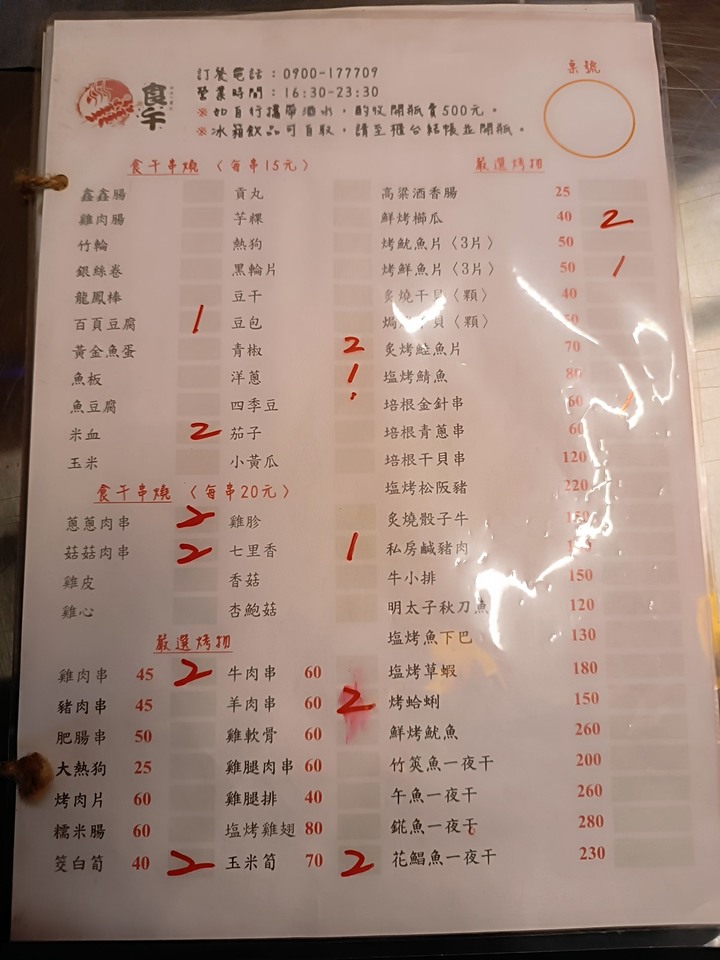 食午
訂餐電話：0900-177709
營業時間：16:30-23:30
※如自行攜帶酒水，酌收開瓶費500元。
※冰箱飲品可自取，請至櫃台結帳並開瓶。
桌號
食午串燒〈每串15元〉
鑫鑫腸 貢丸
雞肉腸 芋粿
竹輪 熱狗
銀絲卷 黑輪片
龍鳳棒 豆干
百頁豆腐 1 豆包
黃金魚蛋 青椒 2
魚板 洋蔥 1
魚豆腐 四季豆
米血 2 茄子
玉米 小黃瓜
食午串燒〈每串20元〉
蔥蔥肉串 2 雞胗
菇菇肉串 2 七里香 1
雞皮 香菇
雞心 杏鮑菇
嚴選烤物
雞肉串 45 2 牛肉串 60
豬肉串 45 羊肉串 60 2
肥腸串 50 雞軟骨 60
大熱狗 25 雞腿肉串 60
烤肉片 60 雞腿排 40
糯米腸 60 塩烤雞翅 80
筊白筍 40 2 玉米筍 70 2
嚴選烤物
高粱酒香腸 25
鮮烤櫛瓜 40 2
烤魷魚片〈3片〉 50
烤鮮魚片〈3片〉 50 1
炙燒干貝〈顆〉 40
焗 干貝〈顆〉
炙烤鮭魚片 70
塩烤鯖魚 80
培根金針串 60 1
培根青蔥串 60
培根干貝串 120
塩烤松阪豬 220
炙燒骰子牛
私房鹹豬肉
牛小排 150
明太子秋刀魚 120
塩烤魚下巴 130
塩烤草蝦 180
烤蛤蜊 150
鮮烤魷魚 260
竹筴魚一夜干 200
午魚一夜干 260
鯥魚一夜干 280
花鯧魚一夜干 230